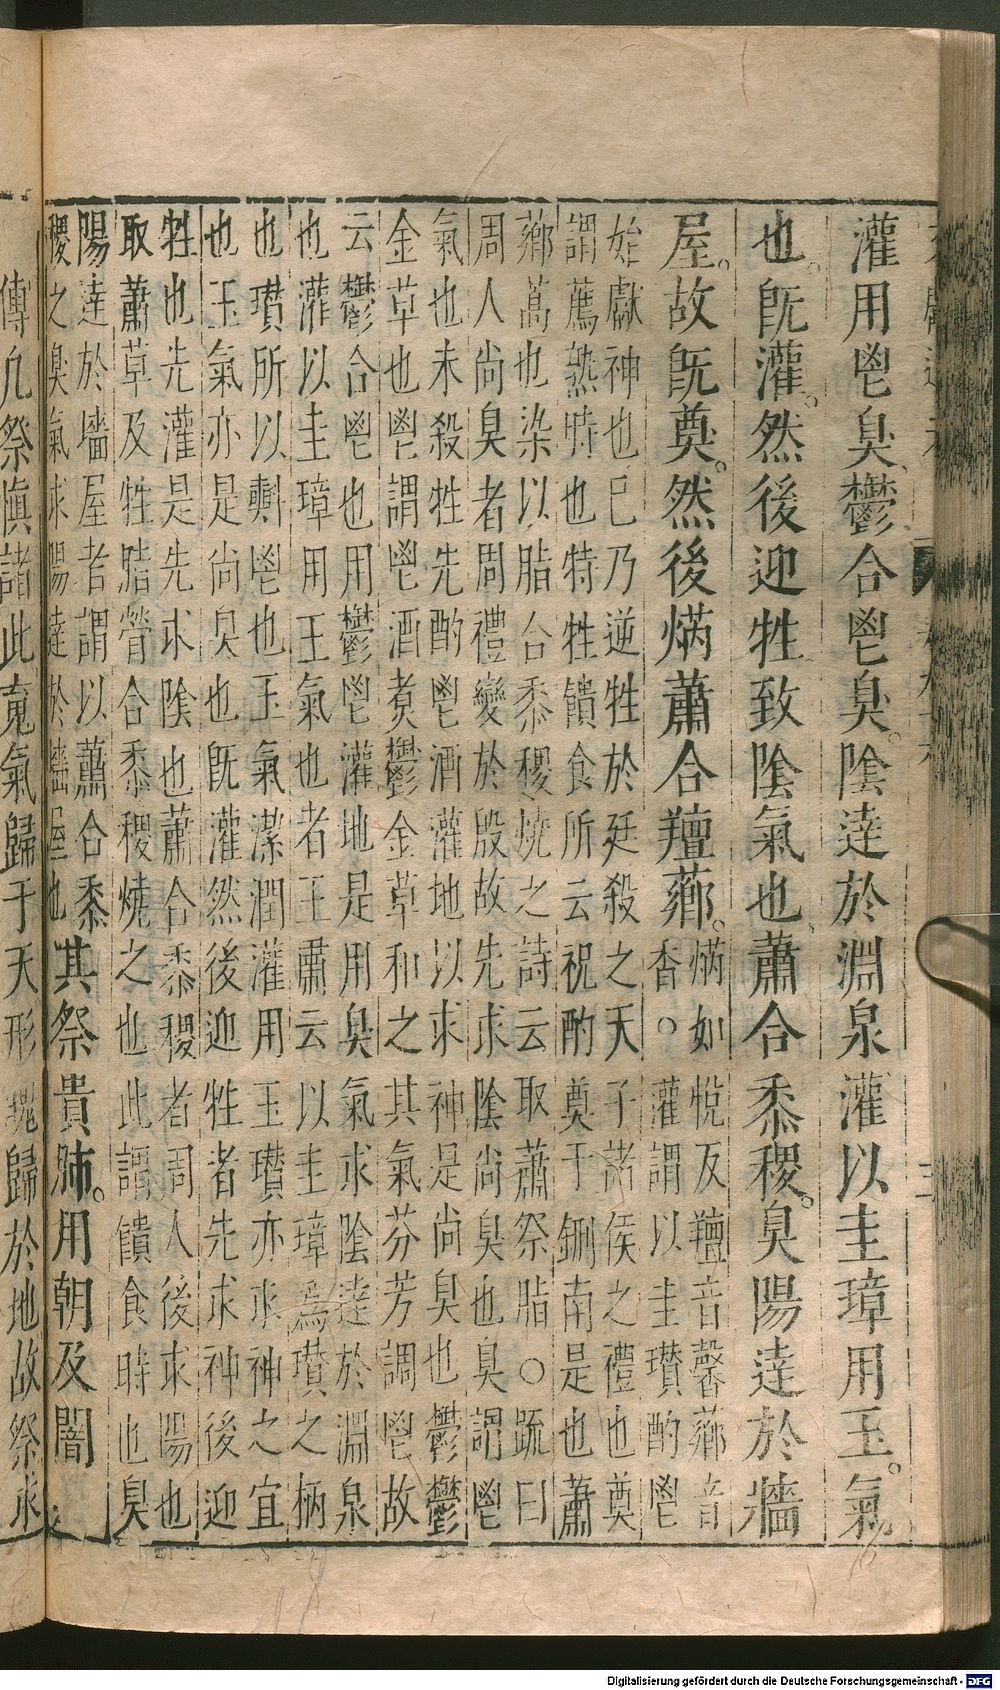 灌用鬯臭鬱合鬯臭。陰達於淵泉灌以圭璋用玉。氣
也。旣灌。然後迎牲致陰氣也蕭合黍稷。臭陽達於牆
屋。故旣奠。然後焫蕭合羶薌。焫如悅反羶音馨薌音
香○灌謂以圭瓚酌鬯
始獻神也已乃逆牲於廷殺之天子諸侯之禮也奠
謂薦熟時也特牲饋食所云祝酌奠于鉶南是也蕭
薌蒿也染以脂合黍稷燒之詩云取蕭祭脂○疏曰
周人尚臭者周禮變於殷故先求陰尚臭也臭謂鬯
氣也未殺牲先酌鬯酒灌地以求神是尚臭也鬱鬱
金草也鬯謂鬯酒煮鬱金草和之其氣芬芳調鬯故
云鬱合鬯也用鬱鬯灌地是用臭氣求陰達於淵泉
也灌以圭璋用玉氣也者王肅云以圭璋爲瓚之柄
也瓚所以㪺鬯也玉氣潔潤灌用玉瓚亦求神之宜
也玉氣亦是尚臭也旣灌然後迎牲者先求神後迎
牲也先灌是先求陰也蕭合黍稷者周人後求陽也
取蕭草及牲脂膋合黍稷燒之也此謂饋食時也臭
陽達於墻屋者謂以蕭合黍
稷之臭氣求陽達於墻屋也其祭貴肺。用朝及闇
傳凡祭慎諸此䰟氣歸于天形魄歸於地故祭求
Digitalisierung gefördert durch die Deutsche Forschungsgemeinschaft - DFG